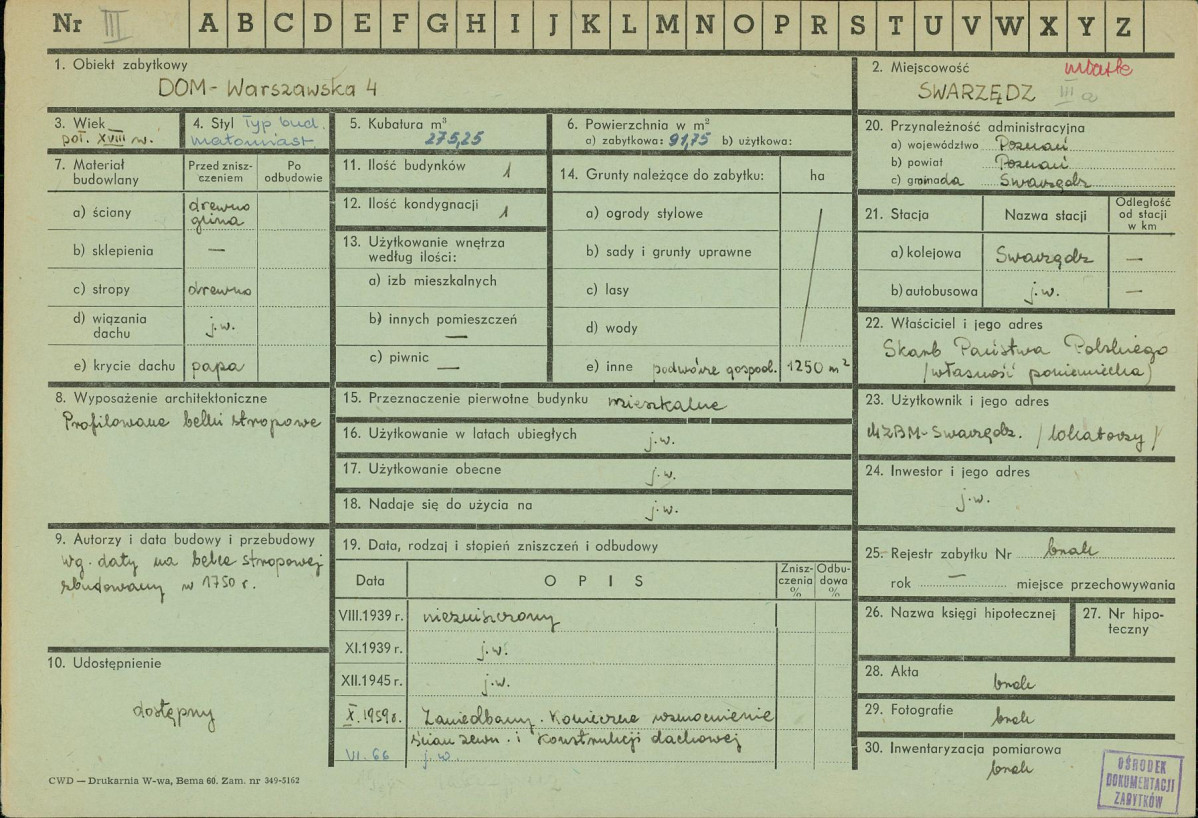 Nr III A B C D E F G H I J K L M N O P R S T U V W X Y Z
1. Obiekt zabytkowy
DOM - Warszawska 4
2. Miejscowość
SWARZĘDZ III a
3. Wiek
poł. XVIII w.
4. Styl Typ bud.
małomiast
5. Kubatura m³
275,25
6. Powierzchnia w m²
a) zabytkowa: 91,75 b) użytkowa:
7. Materiał budowlany
Przed zniszczeniem
Po odbudowie
a) ściany drewno
glina
b) sklepienia —
c) stropy drewno
d) wiązania dachu j.w.
e) krycie dachu papa
8. Wyposażenie architektoniczne
Profilowane belki stropowe
9. Autorzy i data budowy i przebudowy
wg. daty na belce stropowej
zbudowany w 1750 r.
10. Udostępnienie
dostępny
11. Ilość budynków 1
12. Ilość kondygnacji 1
13. Użytkowanie wnętrza
według ilości:
a) izb mieszkalnych
b) innych pomieszczeń
—
c) piwnic —
14. Grunty należące do zabytku: ha
a) ogrody stylowe
b) sady i grunty uprawne
c) lasy
d) wody
e) inne podwórze gospod. 1250 m²
15. Przeznaczenie pierwotne budynku mieszkalne
16. Użytkowanie w latach ubiegłych j.w.
17. Użytkowanie obecne j.w.
18. Nadaje się do użycia na j.w.
19. Data, rodzaj i stopień zniszczeń i odbudowy
Data O P I S Zniszczenia % Odbudowa %
VIII.1939 r. niezniszczony
XI.1939 r. j.w.
XII.1945 r. j.w.
X.1959r. Zaniedbany. Konieczne wzmocnienie
ścian zewn. i konstrukcji dachowej
VI. 66 j.w.
20. Przynależność administracyjna
a) województwo Poznań
b) powiat Poznań
c) gromada Swarzędz
21. Stacja Nazwa stacji Odległość od stacji w km
a) kolejowa Swarzędz —
b) autobusowa j.w. —
22. Właściciel i jego adres
Skarb Państwa Polskiego
/własność poniemiecka/
23. Użytkownik i jego adres
MZBM-Swarzędz. /lokatorzy/
24. Inwestor i jego adres
j.w.
25. Rejestr zabytku Nr brak
rok — miejsce przechowywania
26. Nazwa księgi hipotecznej
27. Nr hipoteczny
28. Akta
brak
29. Fotografie
brak
30. Inwentaryzacja pomiarowa
brak
OŚRODEK
DOKUMENTACJI
ZABYTKÓW
CWD — Drukarnia W-wa, Bema 60. Zam. nr 349-5162